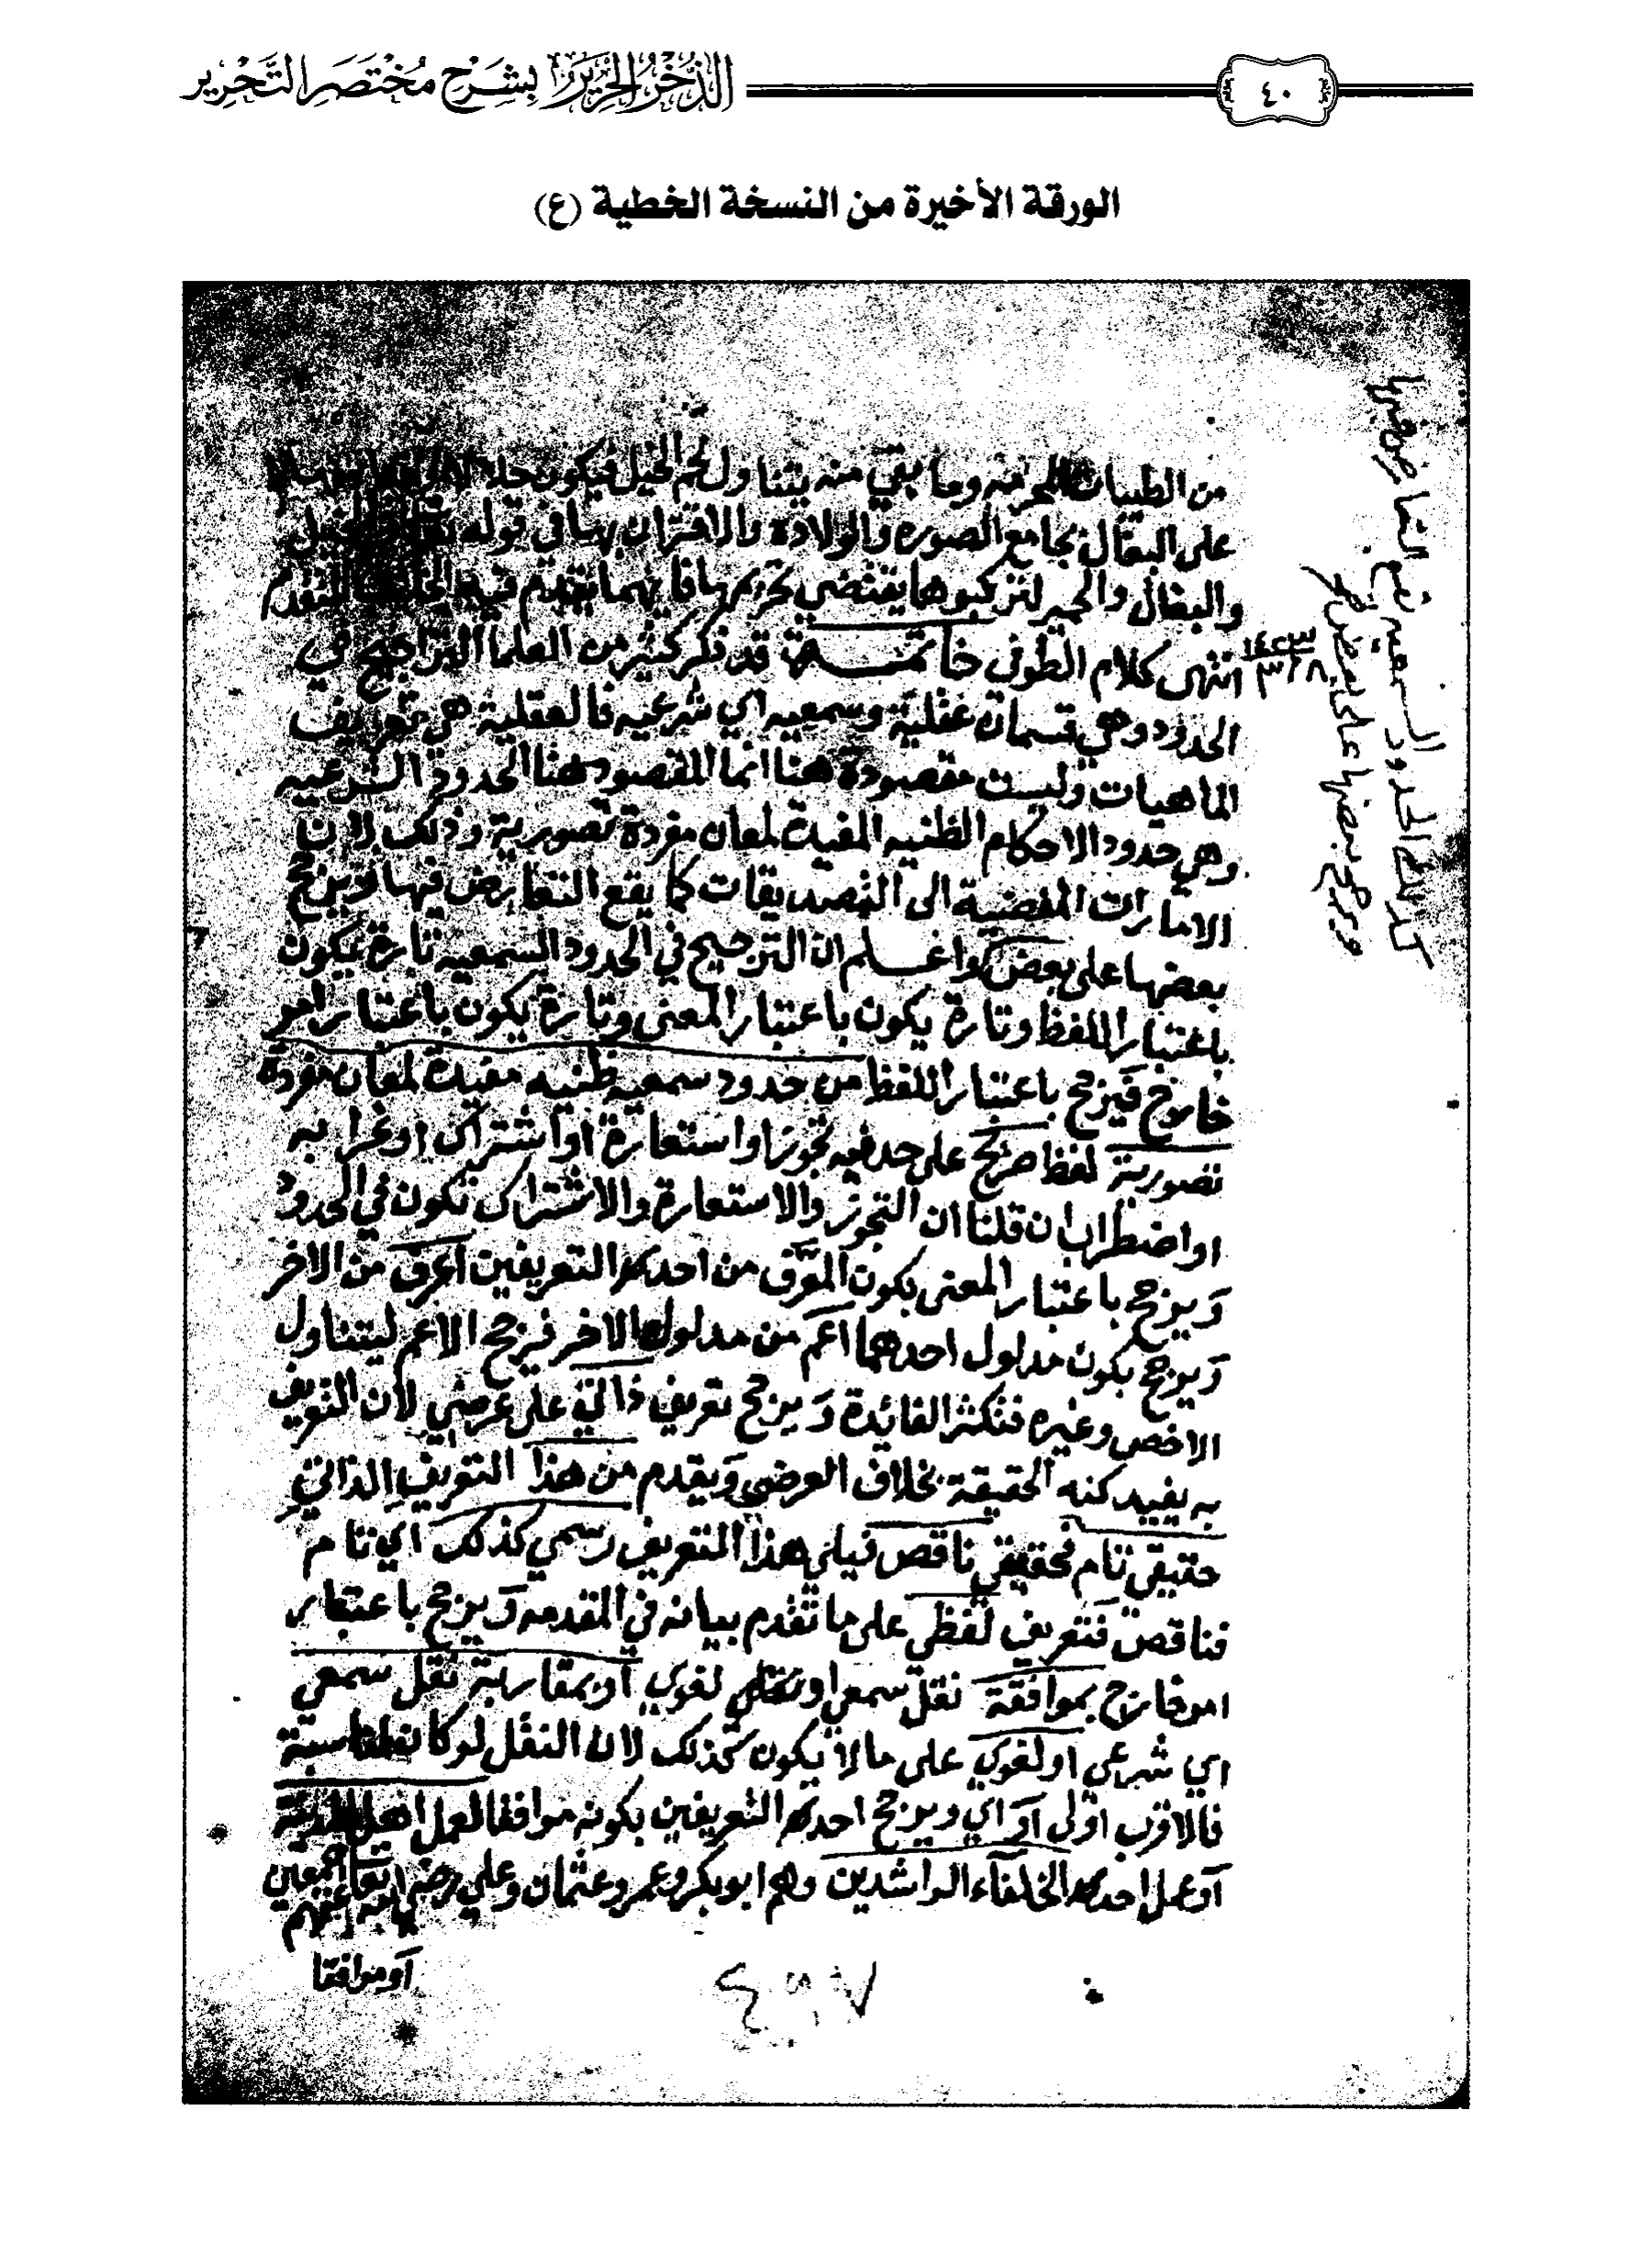 ٤٠
الذُّخْرُ الحَرِيرُ بِشَرْحِ مُخْتَصَرِ التَّحْرِيرِ
الورقة الأخيرة من النسخة الخطية (ع)
من الطيبات المحرمة وما بقي منه يتناول لحم الخيل فيكون حلالا
على البغال بجامع الصوره والولادة والاقتران بها في قوله تعالى والخيل
والبغال والحمير لتركبوها يقتضي تحريمها فايهما يقدم فيه الخلاف المتقدم
انتهى كلام الطوفي خاتمة قد ذكر كثير من العلما التراجيح في
الحدود وهي قسمان عقلية وسمعيه اي شرعيه فالعقلية هي تعريف
الماهيات وليست مقصودة هنا انما المقصود هنا الحدود الشرعيه
وهي حدود الاحكام الظنيه المفيدة لمعان مفردة تصورية وذلك لان
الامارات المفضية الى التصديقات كما يقع التعارض فيها ويرجح
بعضها على بعض واعلم ان الترجيح في الحدود السمعيه تارة يكون
باعتبار اللفظ وتارة يكون باعتبار المعنى وتارة يكون باعتبار امر
خارج فيرجح باعتبار اللفظ من حدود سمعيه ظنيه مفيدة لمعان مفردة
تصورية لفظ صريح على حد فيه تجوز او استعارة او اشتراك او غرابه
او اضطراب ان قلنا ان التجوز والاستعارة والاشتراك تكون في الحدود
وَيرجح باعتبار المعنى بكون المعرَّف من احد التعريفين اعرف من الاخر
وَيرجح بكون مدلول احدهما اعم من مدلول الاخر فيرجح الاعم ليتناول
الاخص وغيره فتكثر الفائدة وَيرجح تعريف ذاتي على عرضي لان التعريف
به يفيد كنه الحقيقة بخلاف العرضي وَيقدم من هذا التعريف الذاتي
حقيقي تام فحقيقي ناقص فيلي هذا التعريف رسمي كذلك اي تام
فناقص فتعريف لفظي على ما تقدم بيانه في المقدمه وَيرجح باعتبار
امر خارج بموافقة نقل سمعي او نقل لغوي او بمقاربة نقل سمعي
اي شرعي او لغوي على ما لا يكون كذلك لان النقل لو كان لمناسبة
فالاقرب اولى اَو اي ويرجح احد التعريفين بكونه موافقا لعمل اهل المدينة
اَو عمل احد الخلفاء الراشدين وهم ابو بكر وعمر وعثمان وعلي رضي الله تعالى عنهم اجمعين
اَو موافقا
٤٩٧
كذلك الحدود السمعيه يقع التعارض فيها
ويرجح بعضها على بعض